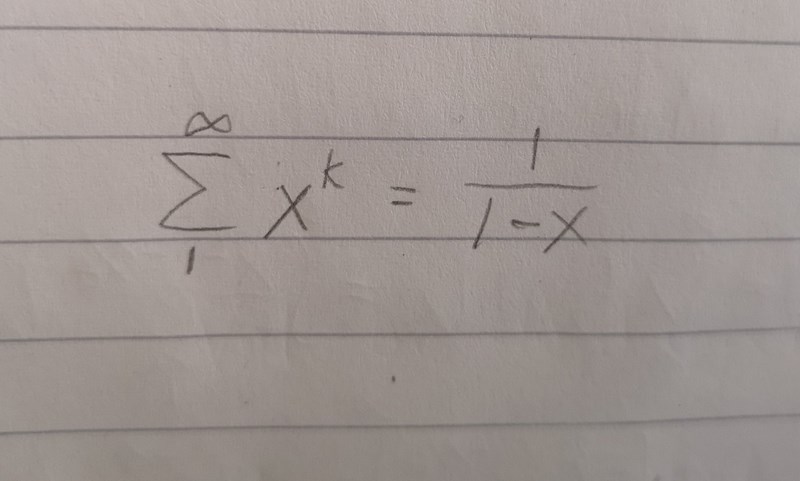 ∑_{1}^{∞} x^k = \frac{1}{1-x}